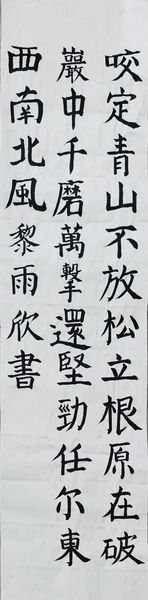 咬定青山不放松立根原在破
巖中千磨萬擊還堅勁任尔東
西南北風黎雨欣書